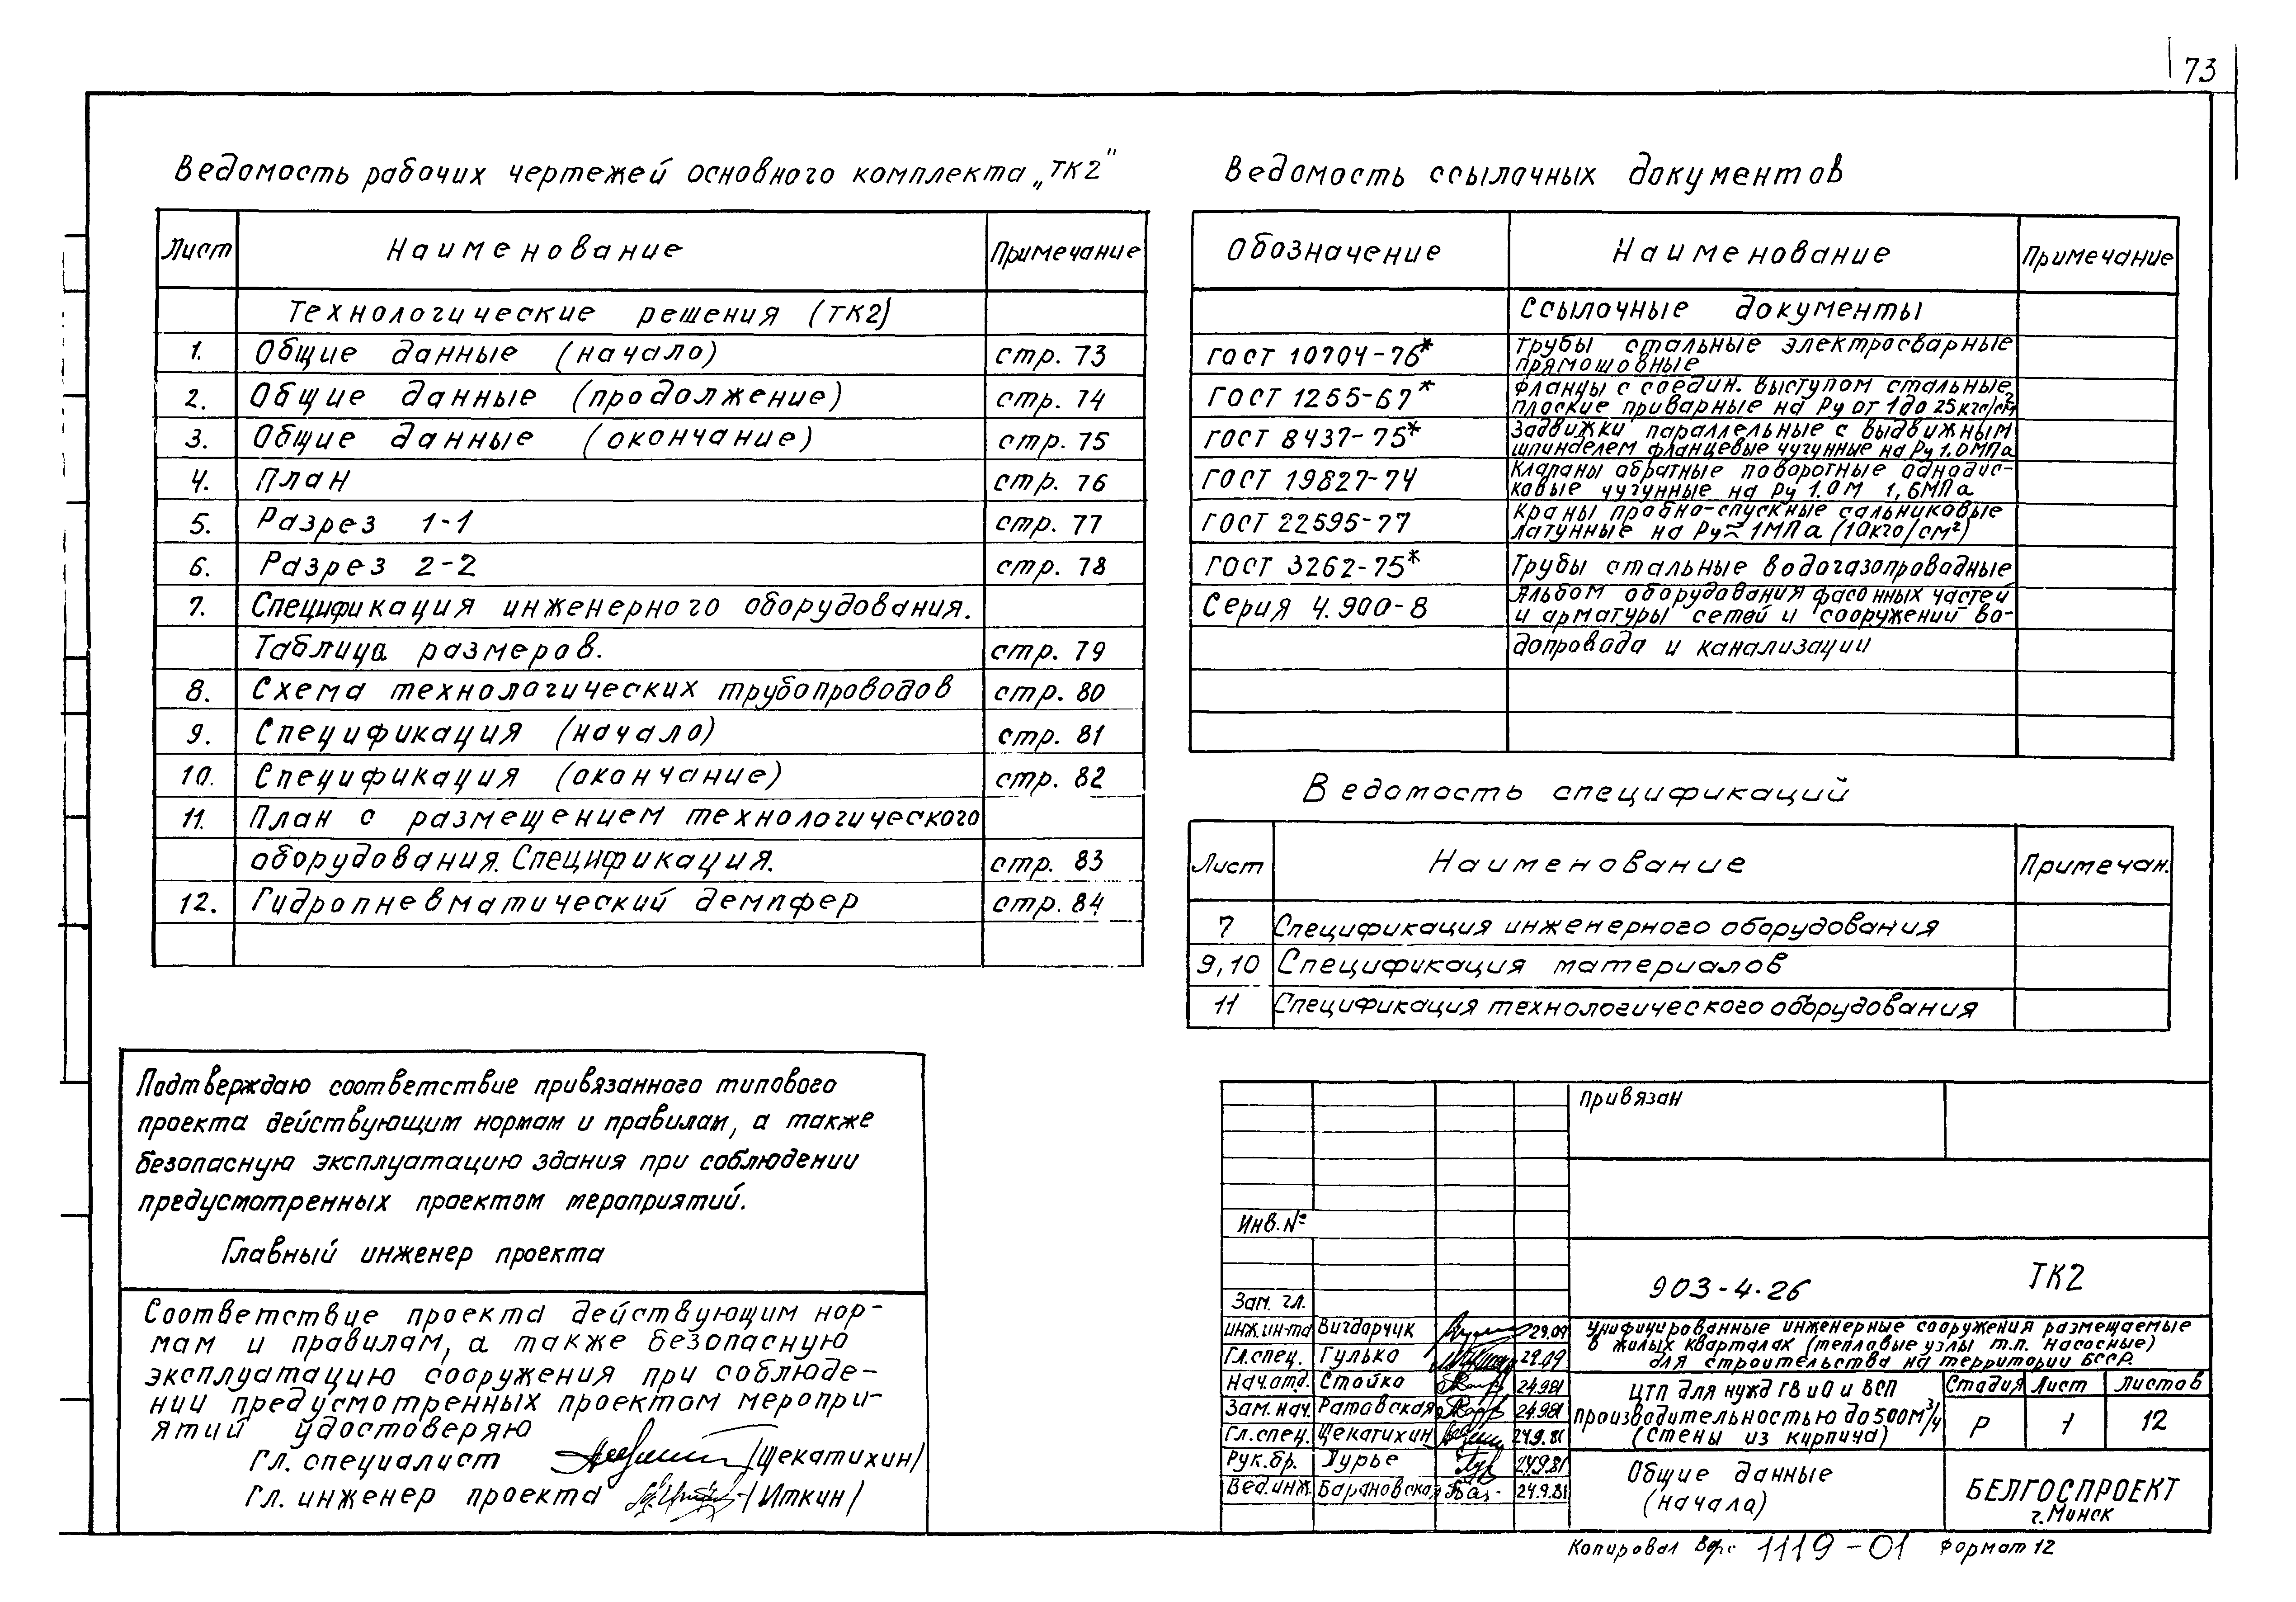 73
Ведомость рабочих чертежей основного комплекта „ТК2"
Лист Наименование Примечание
Технологические решения (ТК2)
1. Общие данные (начало) стр. 73
2. Общие данные (продолжение) стр. 74
3. Общие данные (окончание) стр. 75
4. План стр. 76
5. Разрез 1-1 стр. 77
6. Разрез 2-2 стр. 78
7. Спецификация инженерного оборудования.
Таблица размеров. стр. 79
8. Схема технологических трубопроводов стр. 80
9. Спецификация (начало) стр. 81
10. Спецификация (окончание) стр. 82
11. План с размещением технологического
оборудования. Спецификация. стр. 83
12. Гидропневматический демпфер стр. 84
Ведомость ссылочных документов
Обозначение Наименование Примечание
Ссылочные документы
ГОСТ 10704-76* Трубы стальные электросварные
прямошовные
ГОСТ 1255-67* Фланцы с соедин. выступом стальные
плоские приварные на Ру от 1 до 25 кгс/см²
ГОСТ 8437-75* Задвижки параллельные с выдвижным
шпинделем фланцевые чугунные на Ру 1.0 МПа
ГОСТ 19827-74 Клапаны обратные поворотные однодис-
ковые чугунные на Ру 1.0М 1,6МПа
ГОСТ 22595-77 Краны пробно-спускные сальниковые
латунные на Ру≈1МПа (10кгс/см²)
ГОСТ 3262-75* Трубы стальные водогазопроводные
Серия 4.900-8 Альбом оборудования фасонных частей
и арматуры сетей и сооружений во-
допровода и канализации
Ведомость спецификаций
Лист Наименование Примечан.
7 Спецификация инженерного оборудования
9,10 Спецификация материалов
11 Спецификация технологического оборудования
Подтверждаю соответствие привязанного типового
проекта действующим нормам и правилам, а также
безопасную эксплуатацию здания при соблюдении
предусмотренных проектом мероприятий.
Главный инженер проекта
Соответствие проекта действующим нор-
мам и правилам, а также безопасную
эксплуатацию сооружения при соблюде-
нии предусмотренных проектом меропри-
ятий удостоверяю
Гл. специалист /Щекатихин/
Гл. инженер проекта /Иткин/
Привязан
Инв. №
903-4.26 ТК2
Зам. гл.
инж.ин-та Вигдорчик 29.09
Гл.спец. Гулько 29.09
Нач.отд. Стойко 24.9.81
Зам. нач. Ратовская 24.9.81
Гл.спец. Щекатихин 24.9.81
Рук.бр. Лурье 24.9.81
Вед.инж. Барановская 24.9.81
Унифицированные инженерные сооружения размещаемые
в жилых кварталах (тепловые узлы т.п. насосные)
для строительства на территории БССР.
ЦТП для нужд ГВ и О и ВСП
производительностью до 500 м³/ч
(стены из кирпича)
Стадия Лист Листов
Р 1 12
Общие данные
(начало)
БЕЛГОСПРОЕКТ
г. Минск
Копировал 1119-01 Формат 12